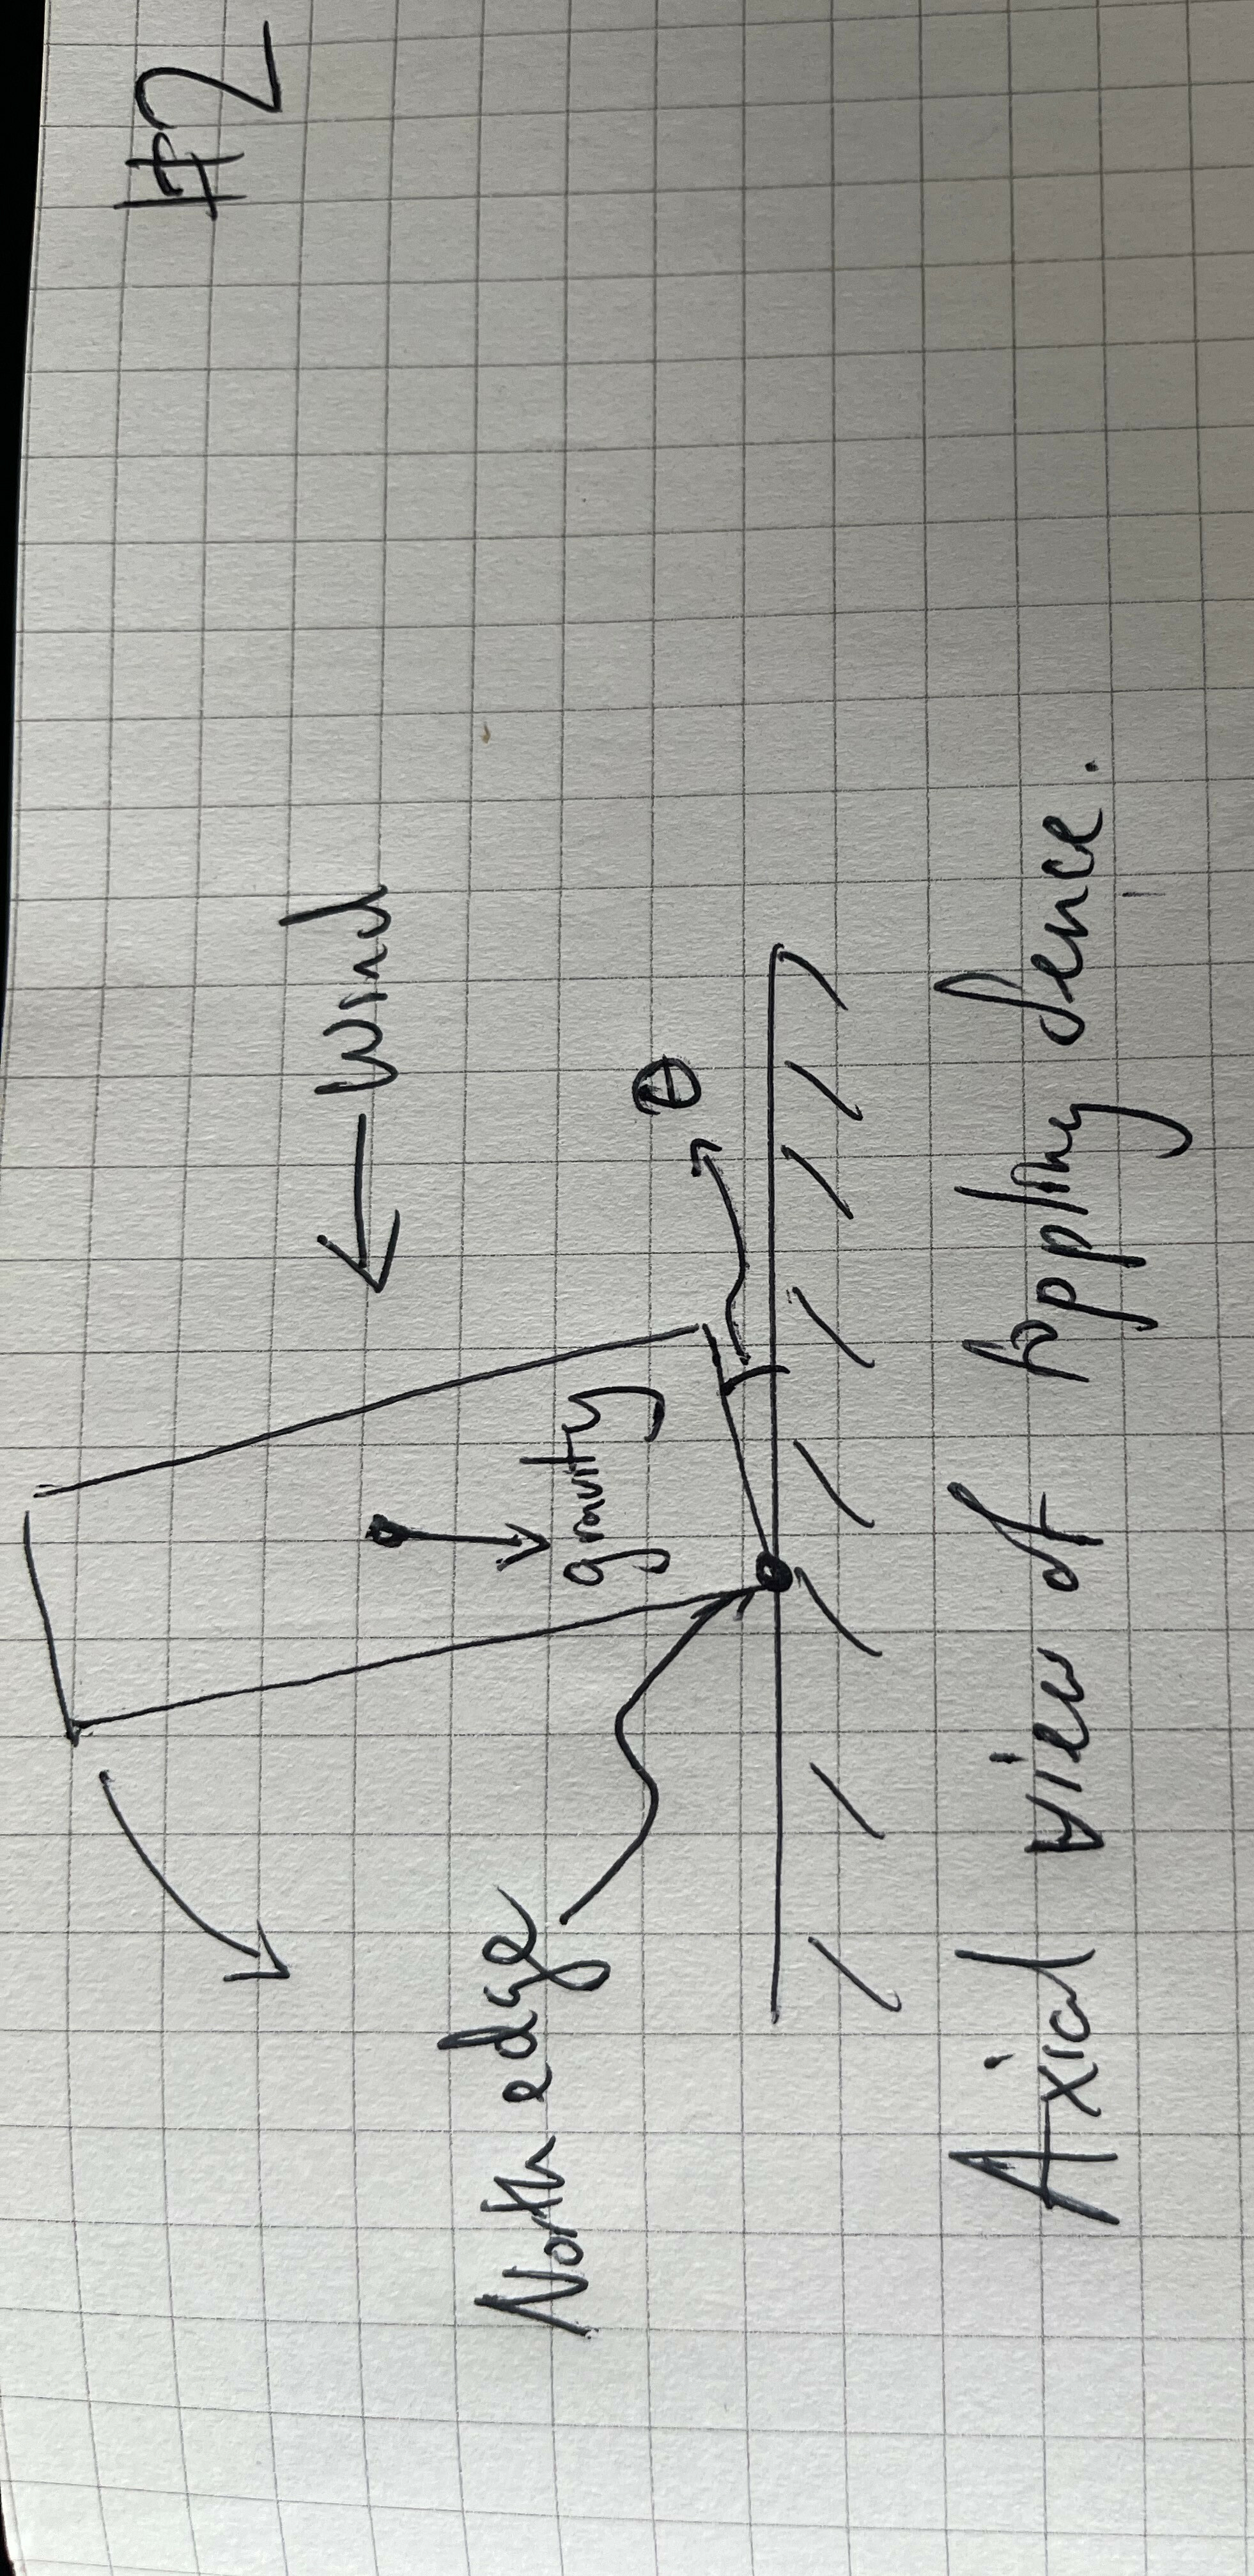 #2
Wind
North edge
gravity
θ
Axial view of toppling fence.